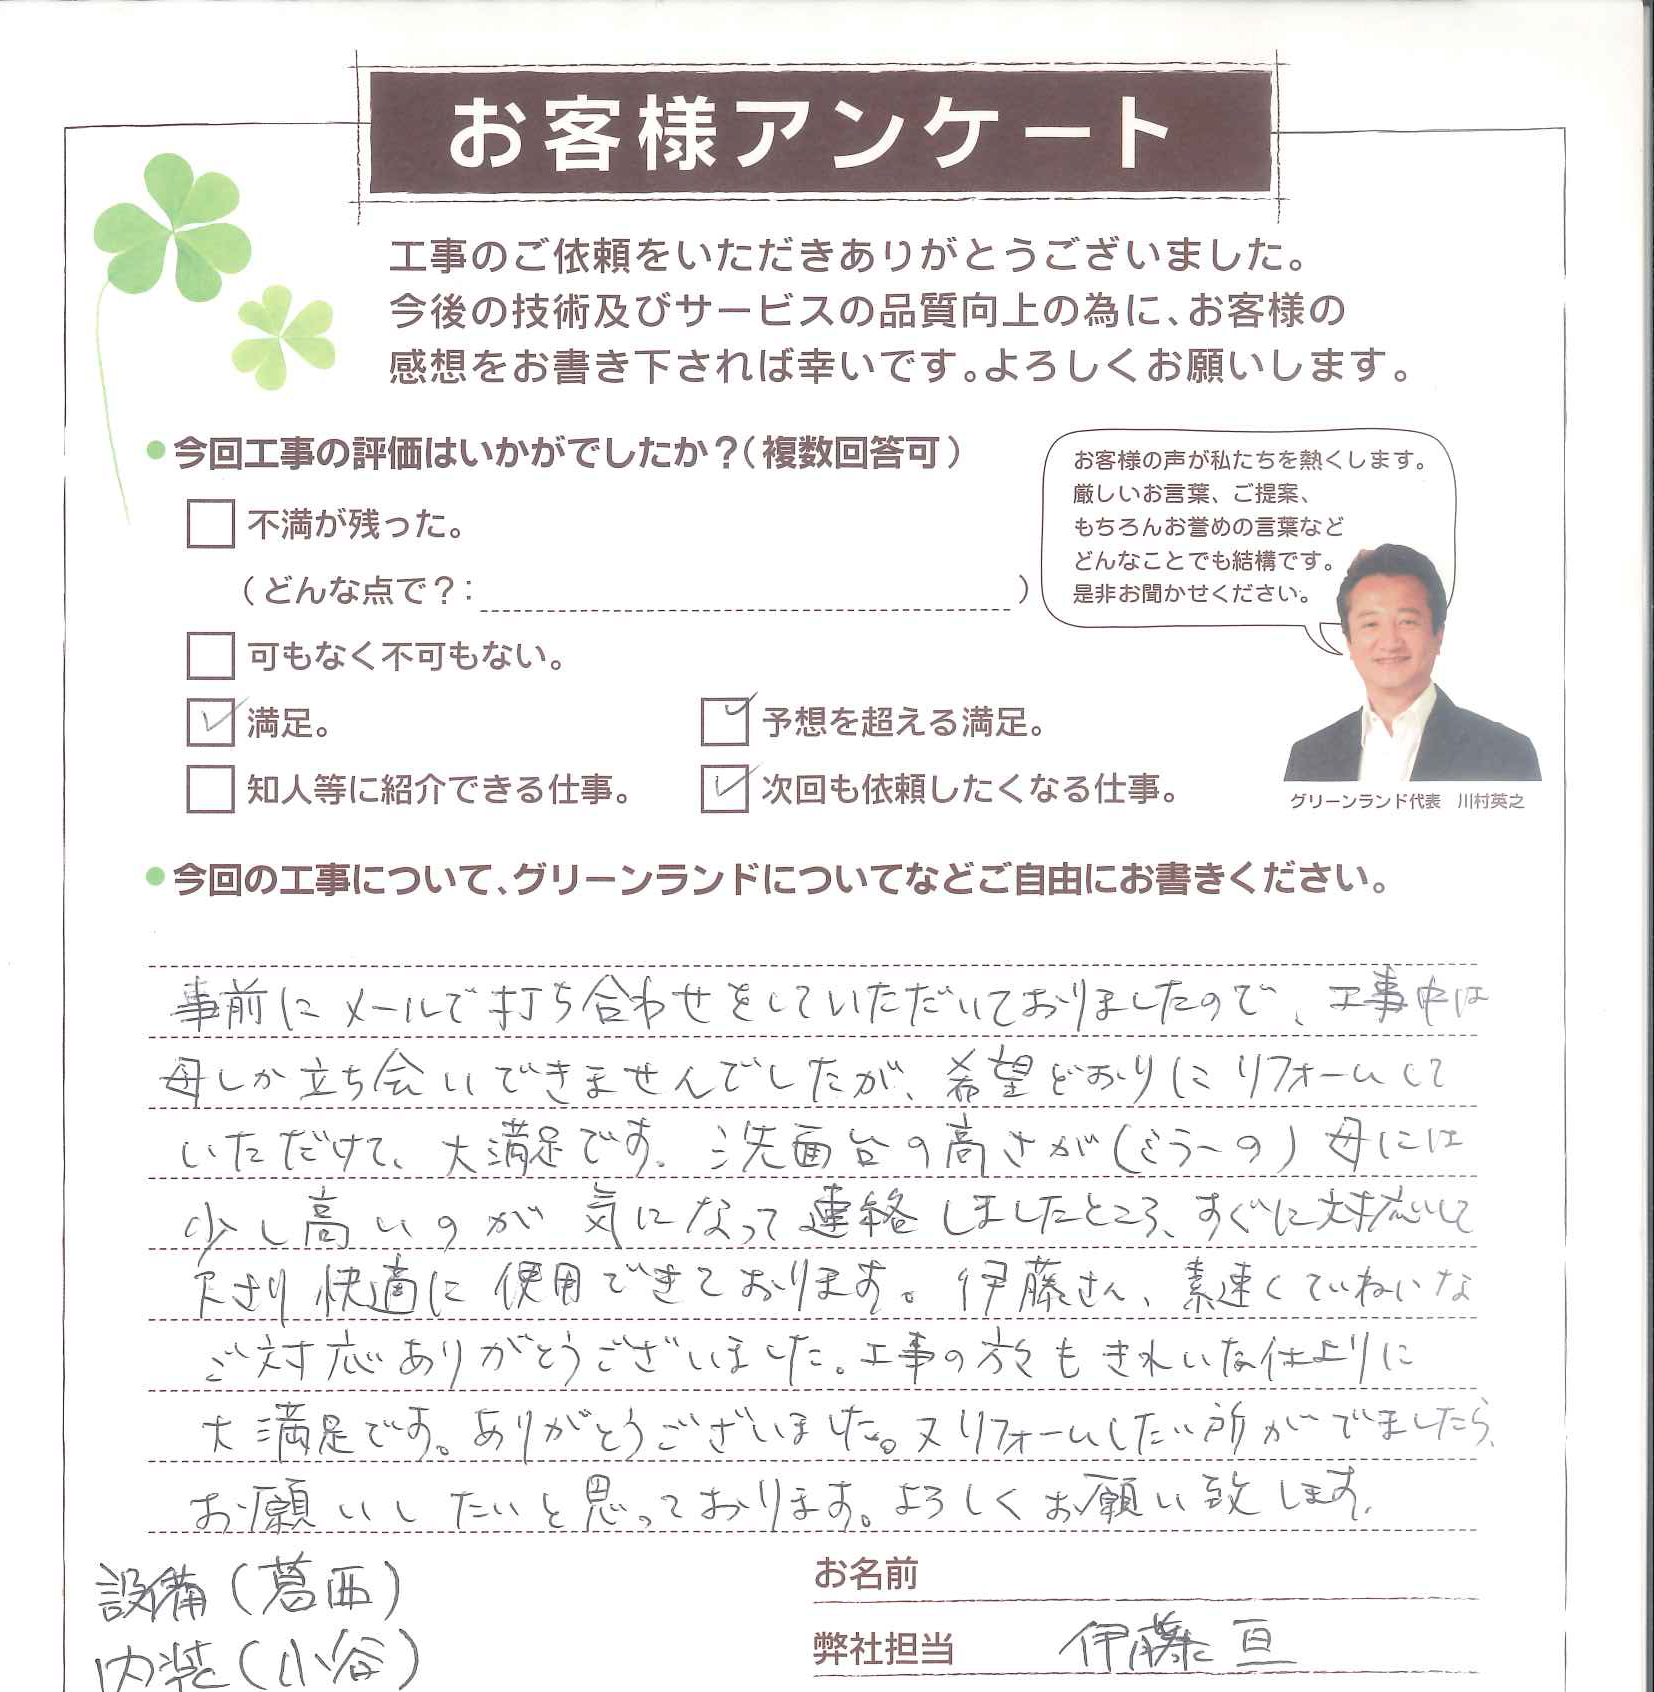 お客様アンケート
工事のご依頼をいただきありがとうございました。
今後の技術及びサービスの品質向上の為に、お客様の
感想をお書き下されば幸いです。よろしくお願いします。
今回工事の評価はいかがでしたか？（複数回答可）
不満が残った。
（どんな点で？： ）
可もなく不可もない。
満足。
予想を超える満足。
知人等に紹介できる仕事。
次回も依頼したくなる仕事。
お客様の声が私たちを熱くします。
厳しいお言葉、ご提案、
もちろんお誉めの言葉など
どんなことでも結構です。
是非お聞かせください。
グリーンランド代表 川村英之
今回の工事について、グリーンランドについてなどご自由にお書きください。
事前にメールで打ち合わせをしていただいておりましたので、工事中は
母しか立ち会いできませんでしたが、希望どおりにリフォームして
いただけて、大満足です。洗面台の高さが（ミラーの）母には
少し高いのが気になって連絡しましたところ、すぐに対応して
下さり快適に使用できております。伊藤さん、素速くていねいな
ご対応ありがとうございました。工事の方々もきれいな仕上りに
大満足です。ありがとうございました。又リフォームしたい所がでましたら、
お願いしたいと思っております。よろしくお願い致します。
設備（葛西）
内装（小谷）
お名前
弊社担当 伊藤 亘